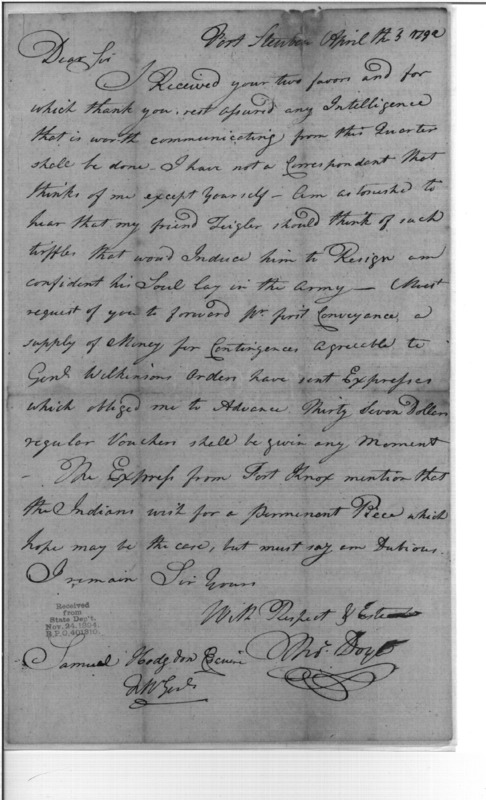 Fort Steuben April th 3 1792
Dear Sir
I Received your two favors and for
which thank you. rest assured any Intelligence
that is worth communicating from this Quarter
shall be done - I have not a Correspondent that
thinks of me except Yourself - Am astonished to
hear that my friend Zeigler should think of such
triffles that woud Induce him to Resign am
confident his Soul lay in the Army - Must
request of you to forward pr first Conveyance a
supply of Money for Contingences Agreeable to
Genl Wilkinsons Orders have sent Expresses
which obliged me to Advance Thirty Seven Dollers
regular Vouchers shall be given any Moment
- The Express from Fort Knox mention that
the Indians wish for a permenant Piece which
hope may be the case, but must say am Dubious.
I remain Sir Yours
With Respect & Esteem
Received
from
State Dep't.
Nov. 24, 1904.
R.P.O. 401310.
Thos. Doyle
Samuel Hodgdon Esquire
Q M Genl